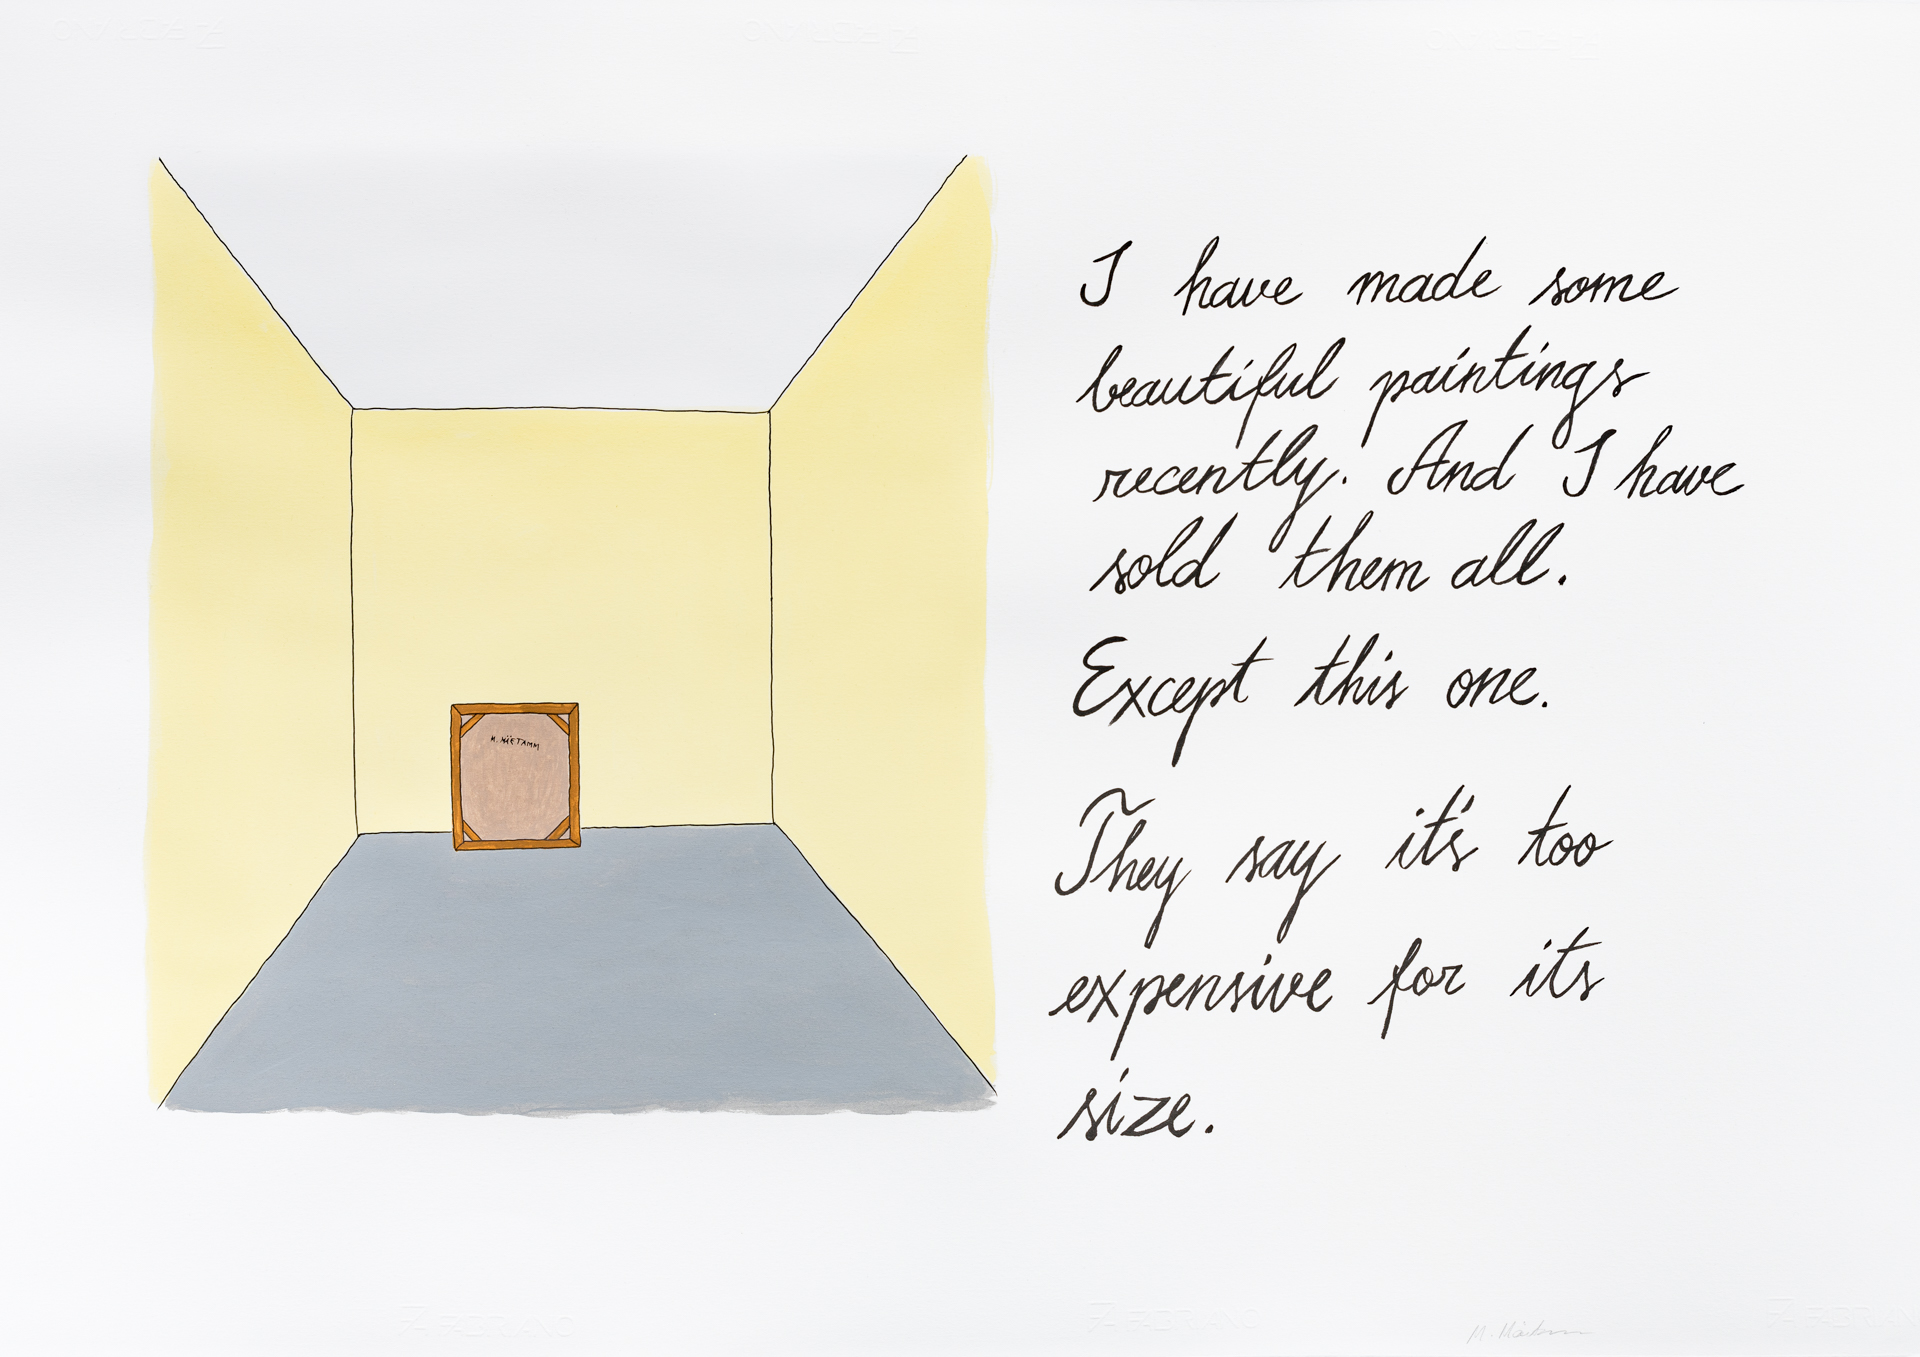 M. MÄETAMM
I have made some
beautiful paintings
recently. And I have
sold them all.
Except this one.
They say it's too
expensive for its
size.
FABRIANO
FABRIANO